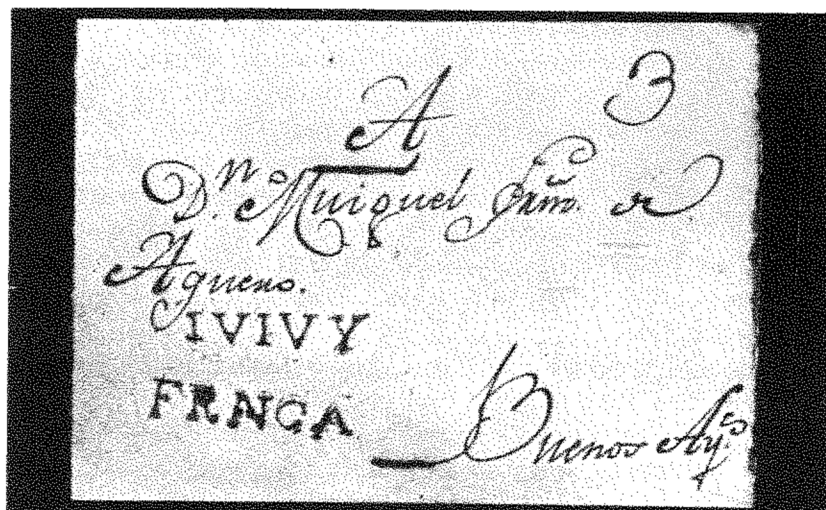 3
A
D.n Muiguel Frañ. de
Aguero.
IVIVY
FRNCA
Buenos Ay.s